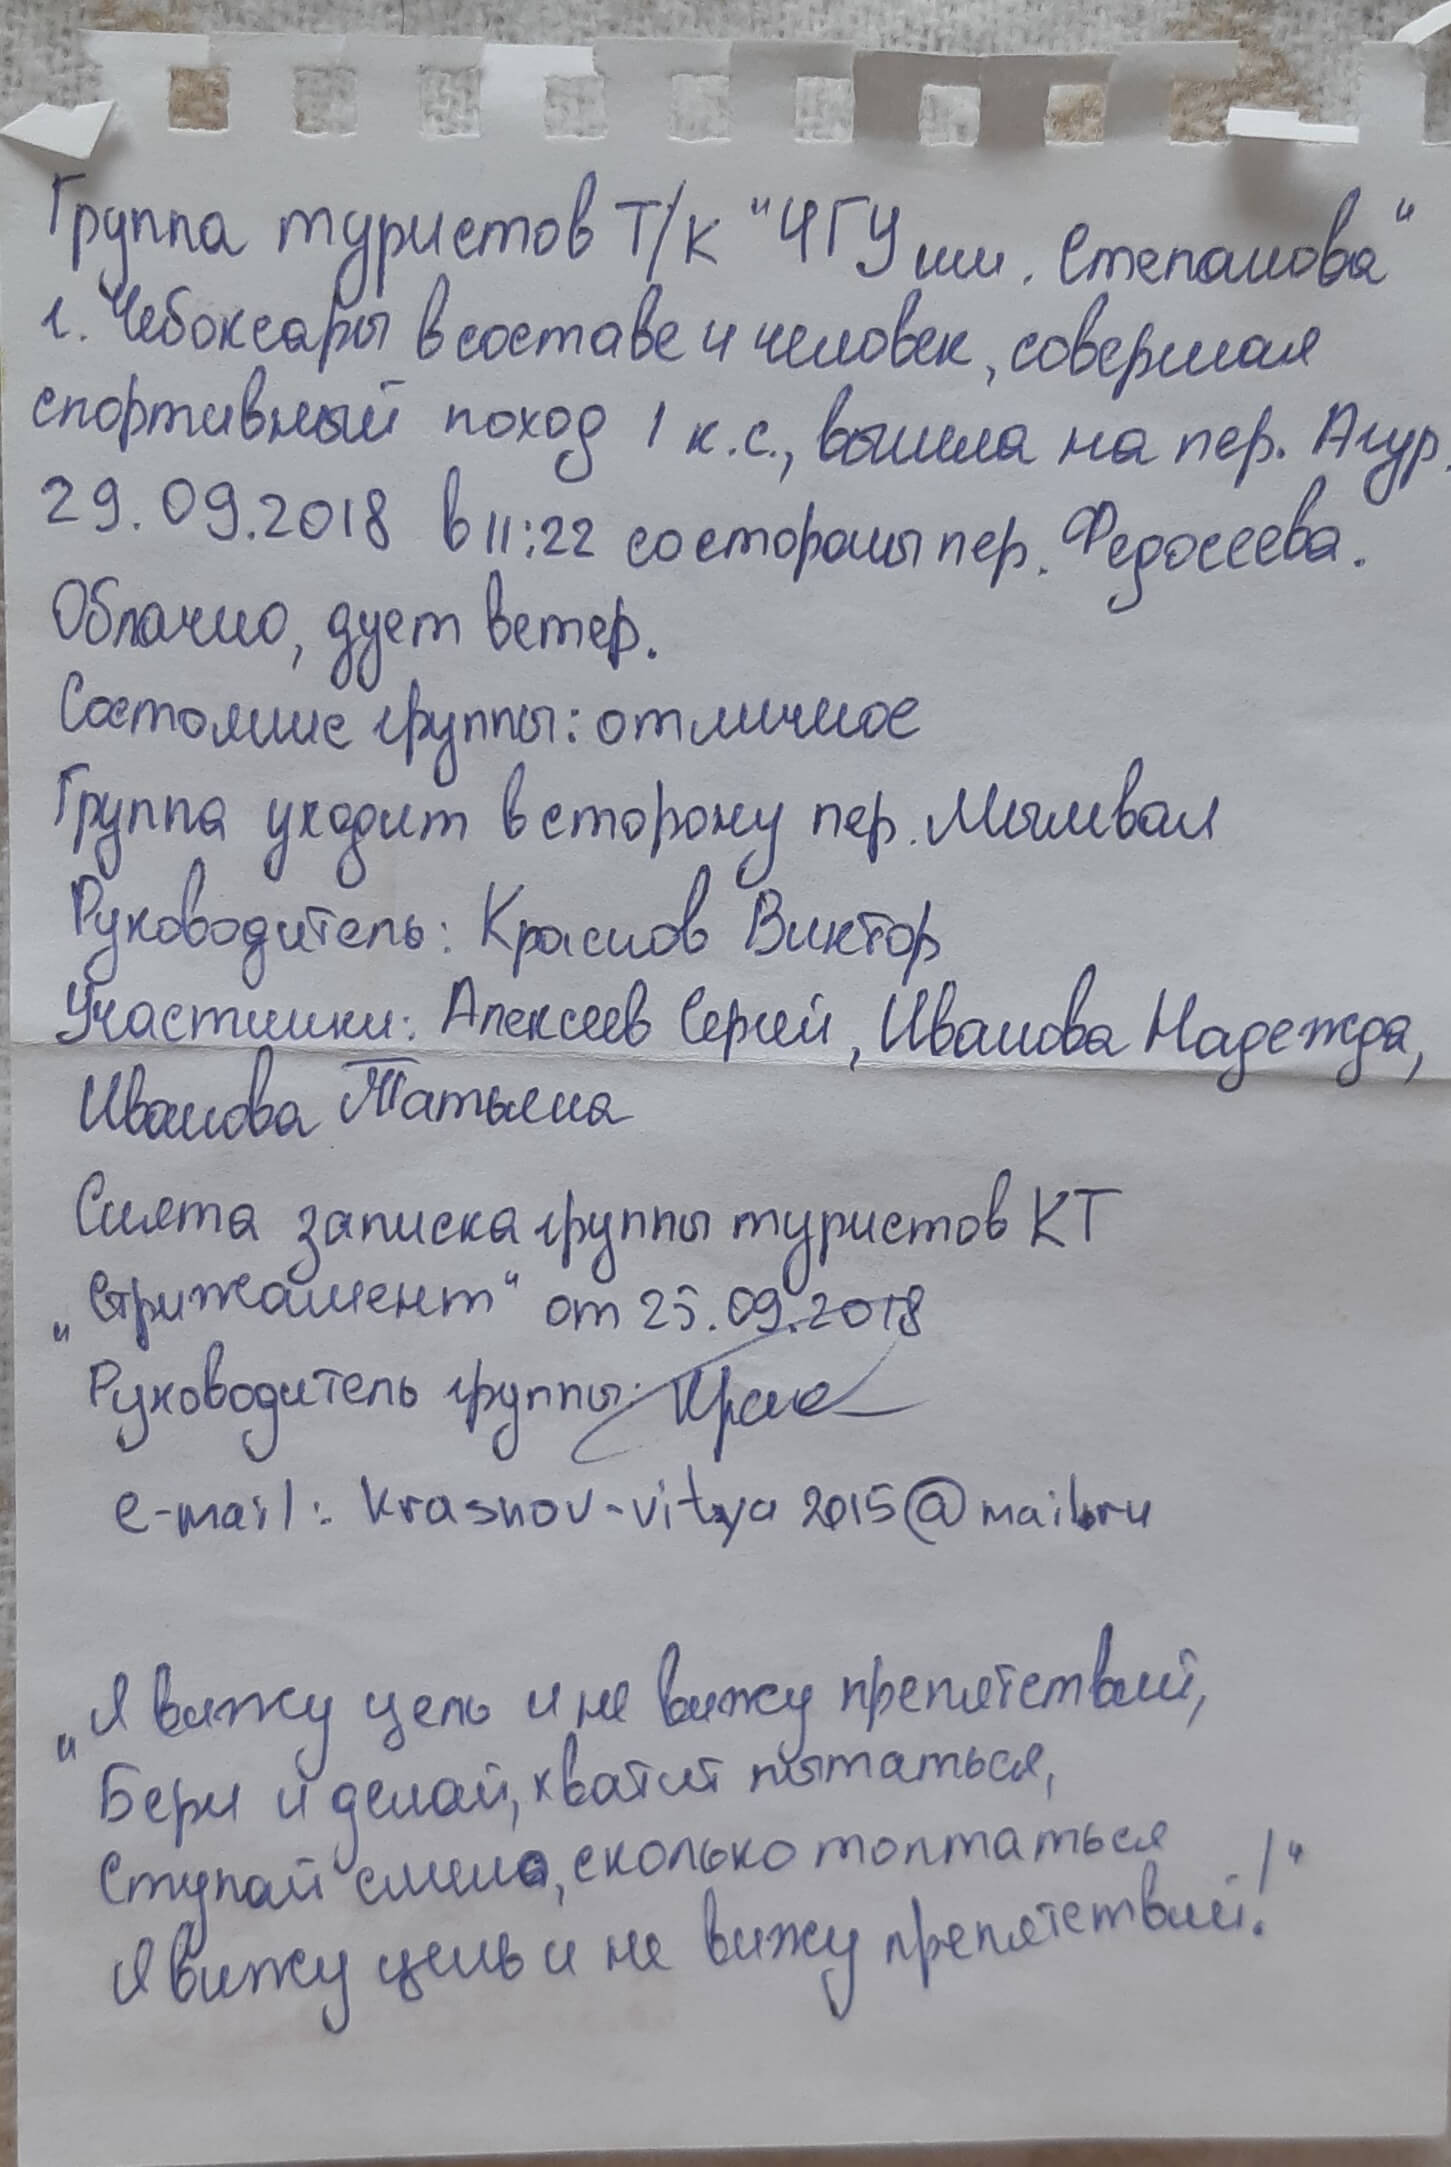 Группа туристов Т/К "ЧГУ им. Степанова"
г. Чебоксары в составе 4 человек, совершая
спортивный поход 1 к.с., вышла на пер. Агур.
29.09.2018 в 11:22 со стороны пер. Федосеева.
Облачно, дует ветер.
Состояние группы: отличное
Группа уходит в сторону пер. Мымвал
Руководитель: Краснов Виктор
Участники: Алексеев Сергей, Иванова Надежда,
Иванова Татьяна
Снята записка группы туристов КТ
„Стрижамент" от 25.09.2018
Руководитель группы:
e-mail: krasnov-vitya2015@mail.ru
„Я вижу цель и не вижу препятствий,
Бери и делай, хватит пытаться,
Ступай смело, сколько топтаться
Я вижу цель и не вижу препятствий!"